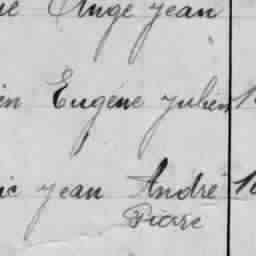 Ange Jean
Eugène Julien
Jean André
Piare